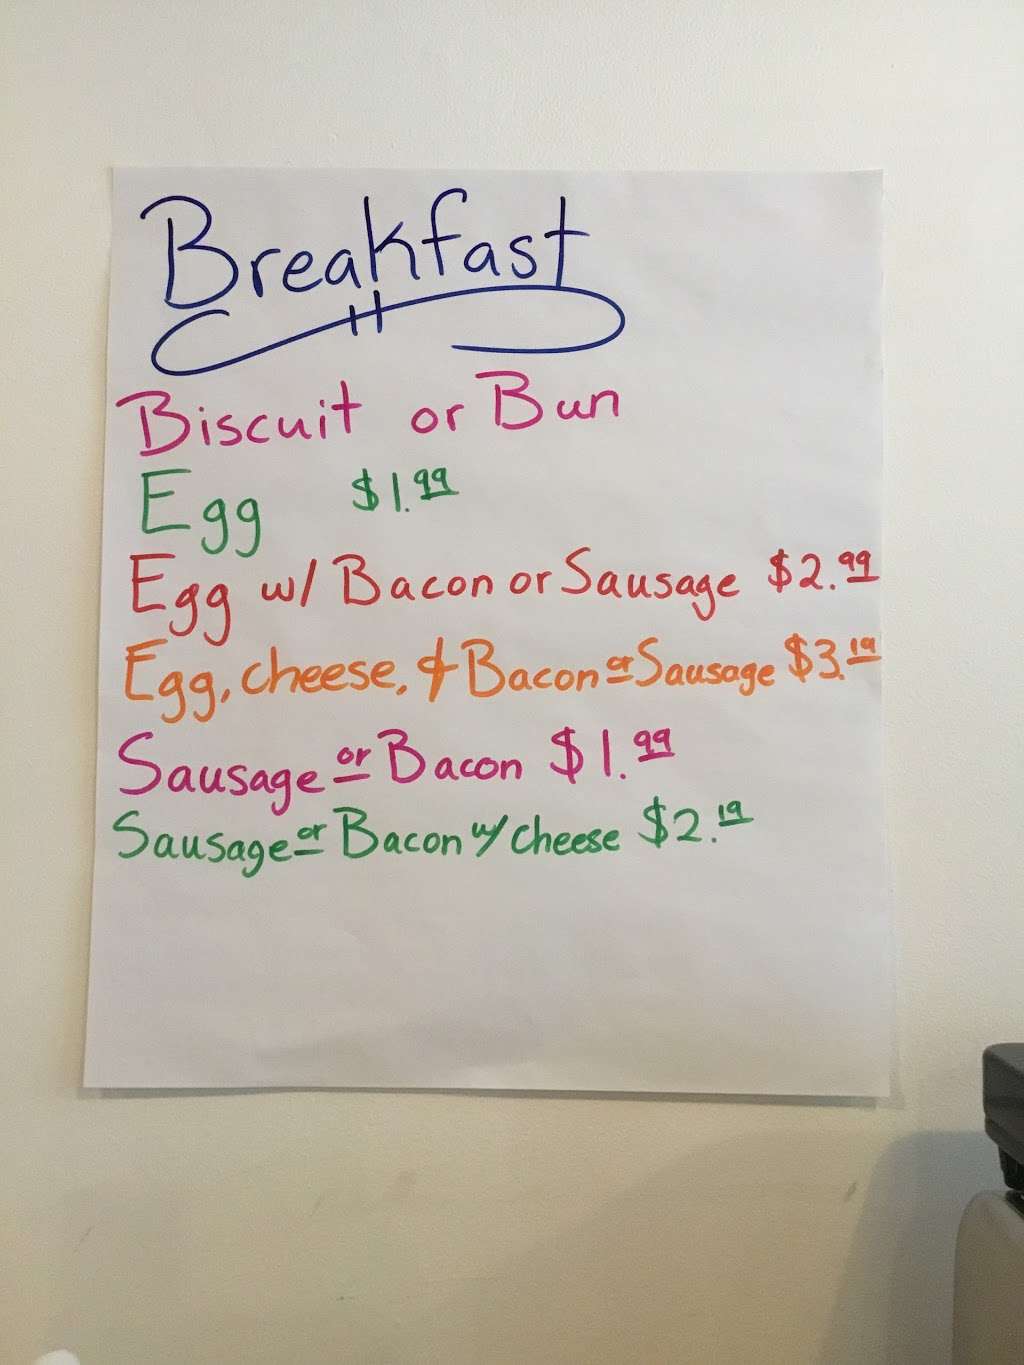 Breakfast
Biscuit or Bun
Egg $1.99
Egg w/ Bacon or Sausage $2.99
Egg, cheese, & Bacon or Sausage $3.19
Sausage or Bacon $1.99
Sausage or Bacon w/ cheese $2.19